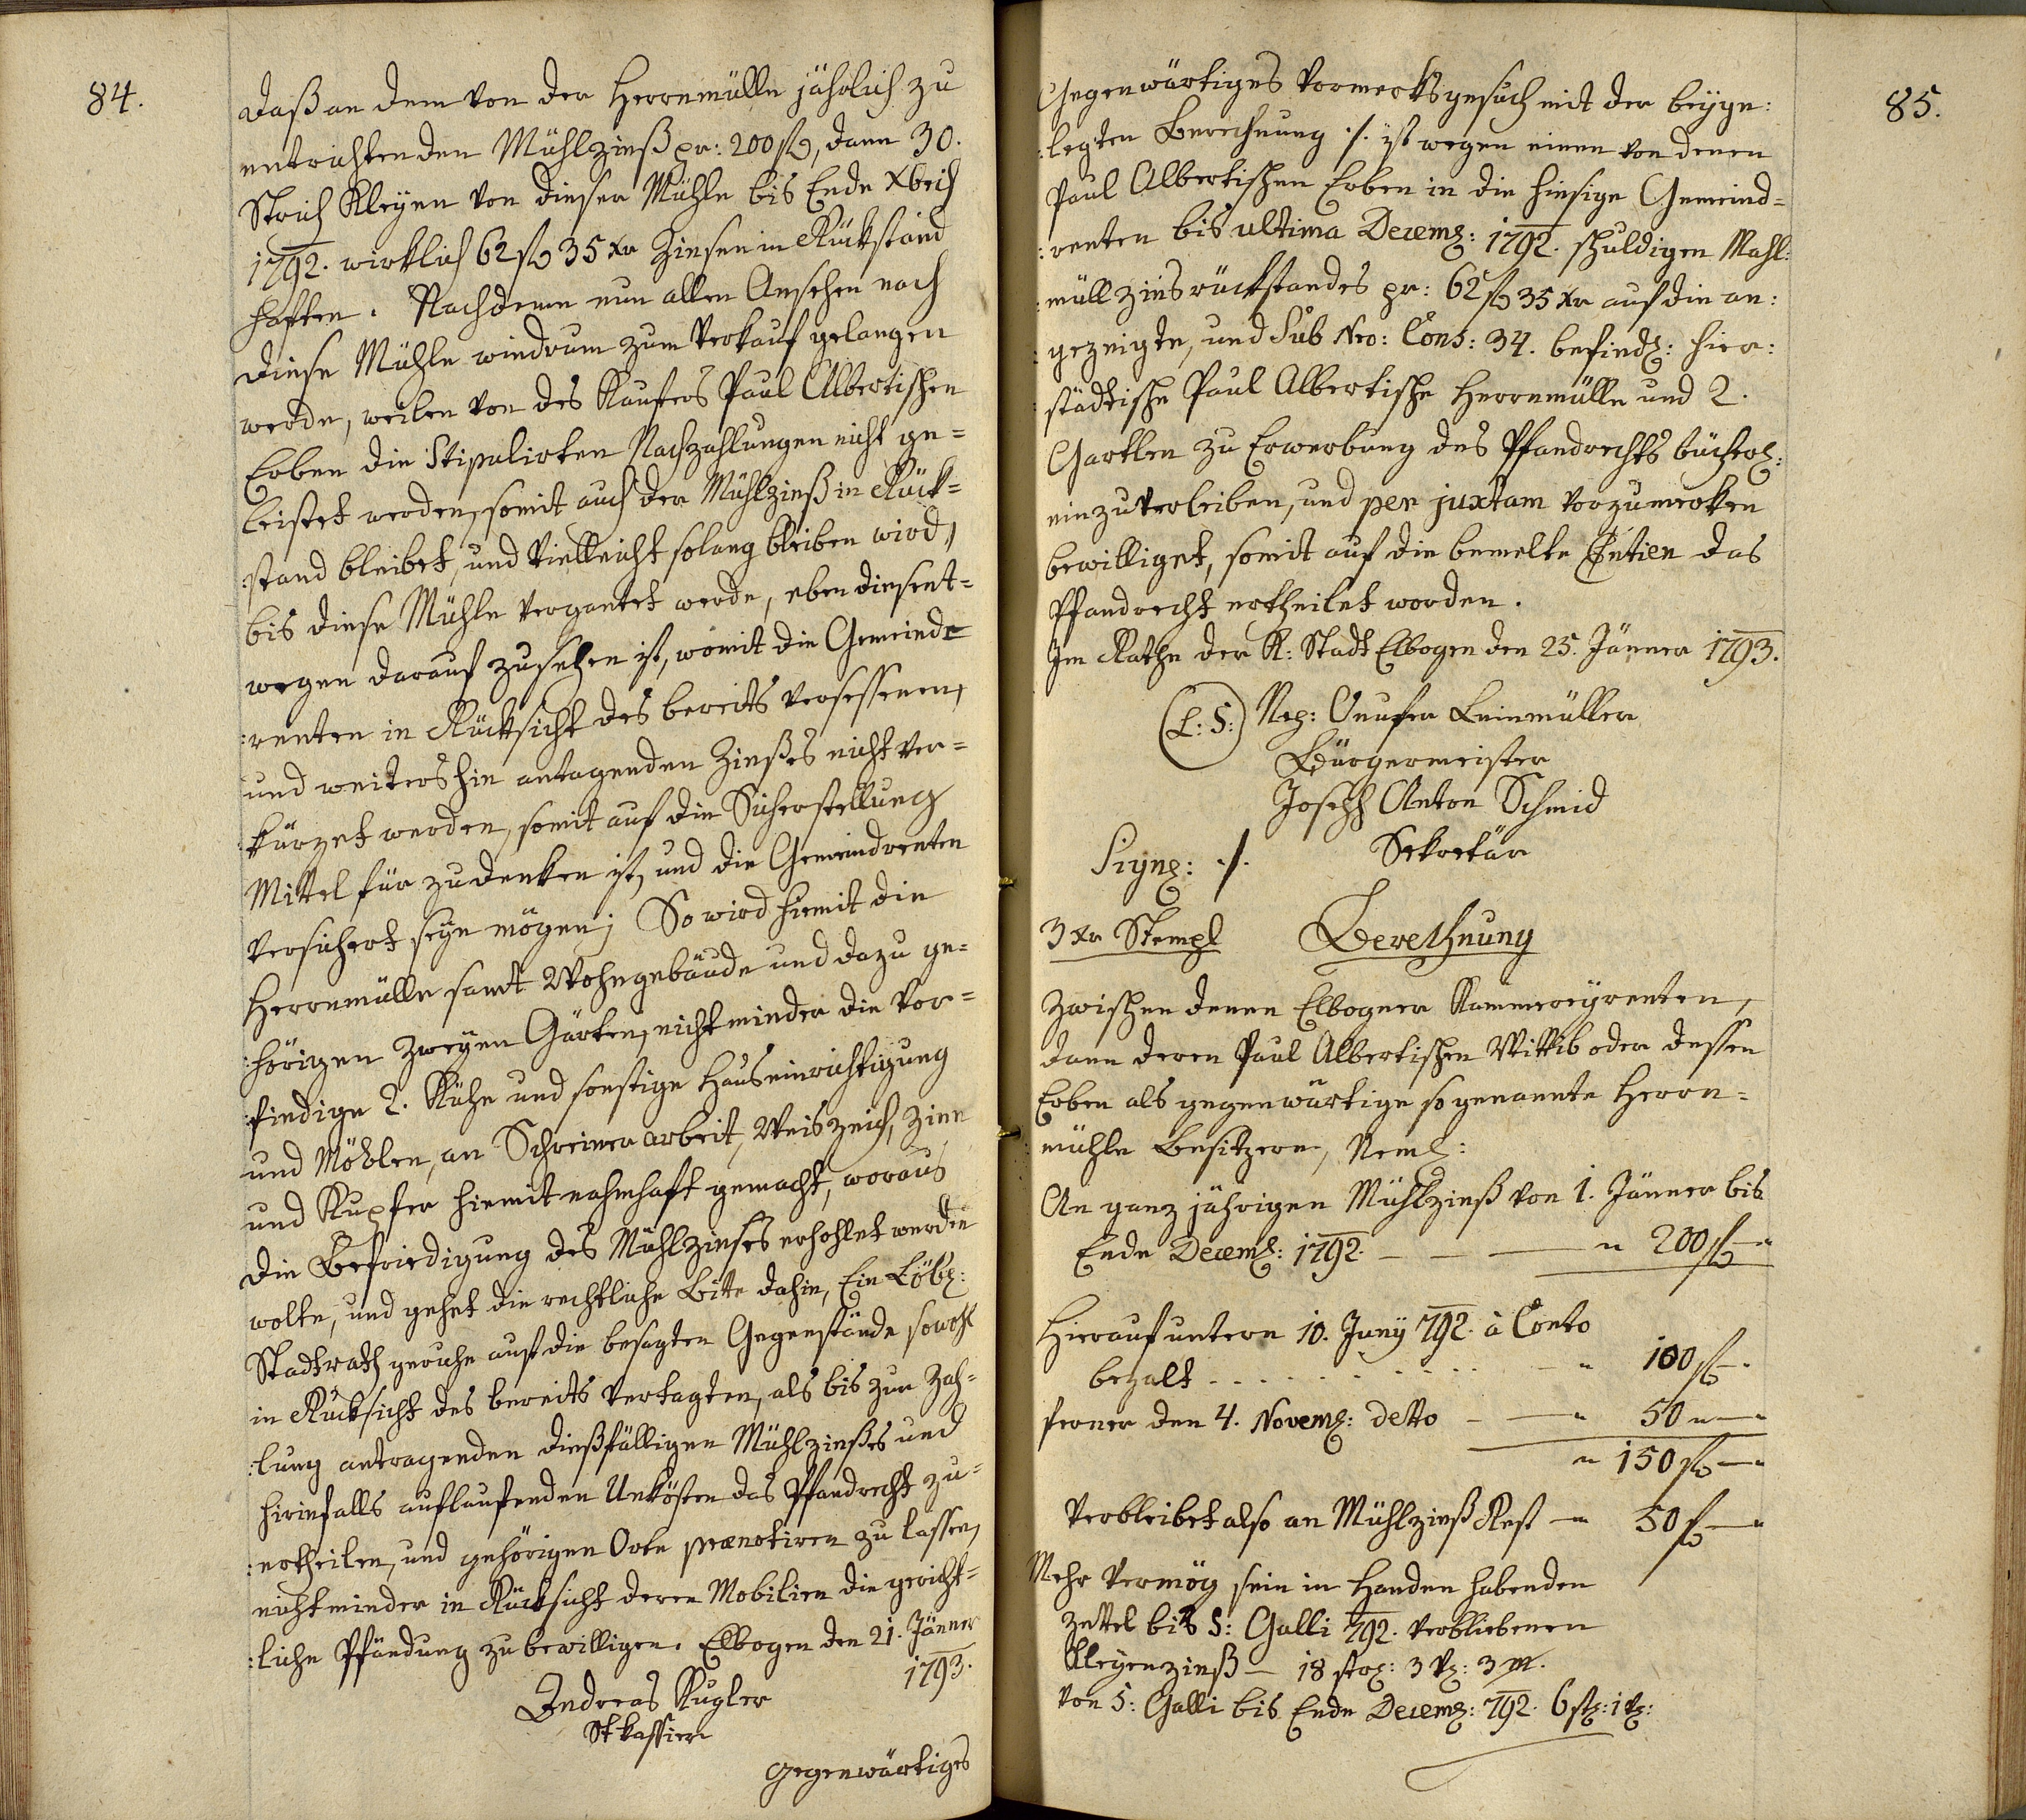 84.
daß an dem von der Herrnmülle jährlich zu
entrichtenden Mühlzinß pr: 200 fl, dann 30.
Strich Kleyen von dieser Mühle bis Ende Xbris
1792. wirklich 62 fl 35 xr Zinsen in Rückstand
haften. Nachdeme nun allen Ansehen nach
diese Mühle wiedrum zum Verkauf gelangen
werde, weilen von des Kaufers Paul Albertischen
Erben die Stipulirten Nachzahlungen nicht ge=
leistet werden, somit auch der Mühlzinß in Rück=
:stand bleibet, und vielleicht solang bleiben wird,
bis diese Mühle vergantet werde, eben diesent=
wegen darauf zusehen ist, womit die Gemeinde=
:renten in Rücksicht des bereits versessenen,
und weitershin antagenden Zinßes nicht ver=
:kürzet werden, somit auf die Sicherstellung
Mittel für zudenken ist, und die Gemeindrenten
versichert seyn mögen; So wird hiemit die
Herrnmülle samt Wohngebäude und dazu ge=
:hörigen zweyen Gärten, nicht minder die vor=
:findige 2. Kühe und sonstige Hauseinrichtigung
und Möblen, an Schreinerarbeit, Weiszeich, Zinn
und Kupfer hiemit nahmhaft gemacht, woraus
die Befriedigung des Mühlzinses erhohlet werden
wolte, und gehet die rechtliche Bitte dahin, Ein Löbl:
Stadtrath geruhe auf die besagten Gegenstände sowohl
in Rücksicht des bereits vertagten, als bis zur Zah=
:lung antragenden dießfälligen Mühlzinßes und
hierinfalls auflaufenden Unkösten das Pfandrecht zu=
:ertheilen, und gehörigen Orte prænotiren zu lassen,
nicht minder in Rücksicht deren Mobilien die gericht=
:liche Pfändung zu bewilligen. Elbogen den 21. Jänner
1793.
Andreas Kugler
St kassier
gegenwärtiges
85.
Gegenwärtiges Vormerksgesuch mit der beyge:
:legten Berechnung ./. ist wegen einen von denen
Paul Albertischen Erben in die hiesige Gemeind=
:renten bis ultima Decemb: 1792. schuldigen Mahl:
:müllzinsrückstandes pr: 62 fl 35 xr auf die an:
:gezeigte, und Sub Nro: Cons: 34. befindl: hier:
:städtische Paul Albertische Herrnmülle und 2.
Gartlen zu Erwerbung des Pfandrechts bücherl:
einzuverleiben, und per juxtam vorzumerken
bewilliget, somit auf die bemelte Entien das
Pfandrecht ertheilet worden.
Im Rathe der K: Stadt Elbogen den 25. Jänner 1793.
(L: S:) Nep: Onufer Leinmüller
Bürgermeister
Joseph Anton Schmid
Sekretär
Sign: ./.
3 xr Stempl Berechnung
Zwischen denen Elbogner Kammereyrenten,
dann deren Paul Albertischen Wittib oder dessen
Erben als gegenwärtige sogenannte Herrn=
:mühle Besitzern, Neml:
An ganz jährigen Mühlzinß von 1. Jänner bis
Ende Decemb: 1792. — — — „ 200 fl — „
Hierauf untern 10. Juny 792. à Conto
bezalt . . . . . . . . . . — „ 100 fl — .
ferner den 4. Novemb: detto — — „ 50 „ — „
„ 150 fl — „
Verbleibet also an Mühlzinß Rest — „ 50 fl — „
Mehr Vermög sein in Handen habenden
Zettel bis S: Galli 792. verbliebenen
Kleyenzinß — 18 str: 3 v: 3 m.
von S: Galli bis Ende Decemb: 792. 6 st: 1 v: